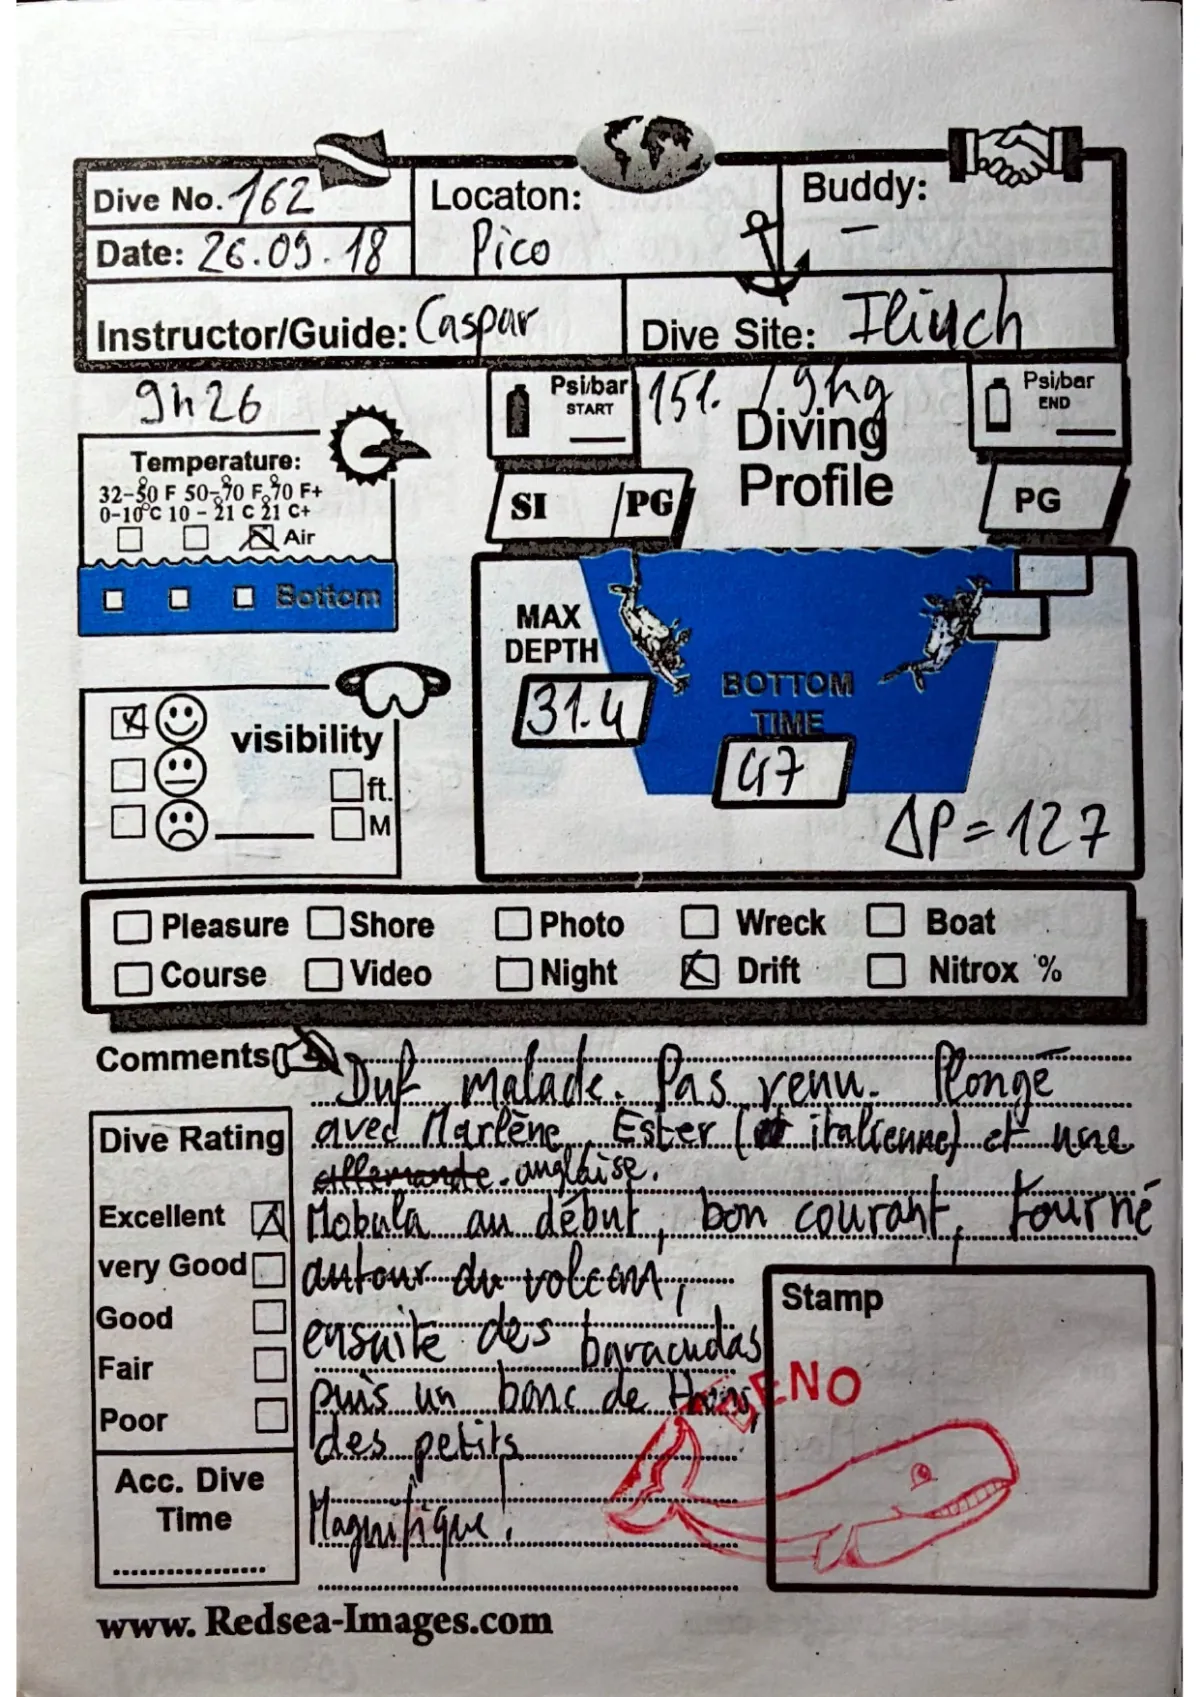 Dive No. 162
Locaton:
Buddy:
Date: 26.09.18
Pico
—
Instructor/Guide: Caspar
Dive Site: Iliuch
9h26
Psi/bar
START
15l. / 9kg
Psi/bar
END
Diving
Profile
Temperature:
32-50 F 50-70 F 70 F+
0-10°C 10 - 21 C 21 C+
Air
Bottom
SI / PG
PG
MAX
DEPTH
31.4
BOTTOM
TIME
47
ΔP = 127
visibility
ft.
M
Pleasure Shore Photo Wreck Boat
Course Video Night Drift Nitrox %
Comments
Duf malade. Pas venu. Plongé
avec Marlène, Ester (italienne) et une
allemande anglaise.
Mobula au début, bon courant, tourné
autour du volcan,
ensuite des baracudas
puis un banc de thons,
des petits
Magnifique.
Dive Rating
Excellent
very Good
Good
Fair
Poor
Acc. Dive
Time
Stamp
ENO
www. Redsea-Images.com